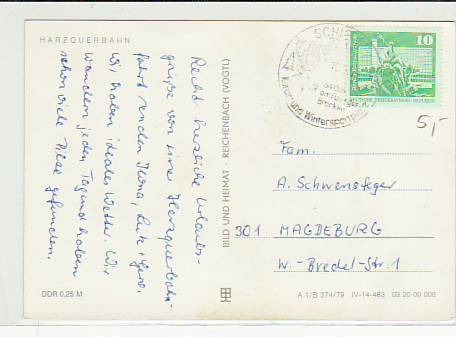 HARZQUERBAHN
Recht herzliche Urlaubs-
grüße von einer Harzquerbahn-
fahrt senden Ilona, Lutz + Gerd.
Wir haben ideales Wetter. Wir
wandern jeden Tag und haben
schon viele Pilze gefunden.
DDR 0,25 M
BILD UND HEIMAT · REICHENBACH (VOGTL)
SCHIE
Kurort und Wintersport
Brocken
10
DEUTSCHE DEMOKRATISCHE REPUBLIK
5,-
Fam.
A. Schwensfeger
301 MAGDEBURG
W.-Bredel-Str. 1
A 1/B 374/79 IV-14-483 03 20 00 008